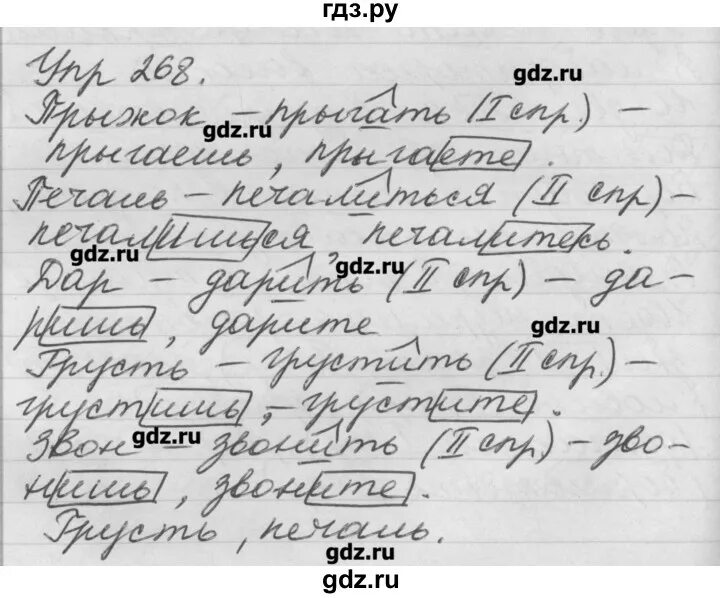 гдз.ру
Упр 268.
gdz.ru
Прыжок – прыгать (I спр.) –
gdz.ru
прыгаешь, прыгаете.
Печаль – печалиться (II спр) –
печалишься, печалитесь.
gdz.ru
gdz.ru
Дар – дарить (II спр) – да-
ришь, дарите
gdz.ru
Грусть – грустить (II спр.) –
грустишь, – грустите.
gdz.ru
Звон – звонить (II спр) – зво-
нишь, звоните.
gdz.ru
gdz.ru
Грусть, печаль.
gdz.ru
gdz.ru